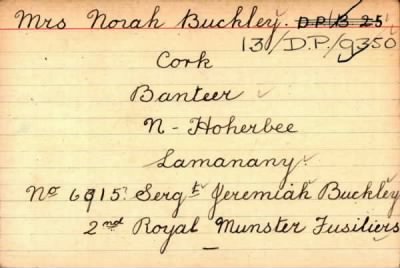 Mrs Norah Buckley. D.P./B 25
13/D.P./9350
Cork
Banteer
N-Hoherbee
Lamanany
No 6915 Sergt Jeremiah Buckley
2nd Royal Munster Fusiliers